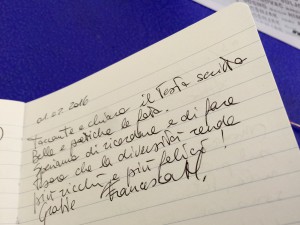 01.07.2016
Toccante e chiaro il testo scritto
belle e poetiche le foto.
Speriamo di ricordare e di fare
tesoro che la diversità rende
più ricchi e più felici!
Grazie Francesca M.